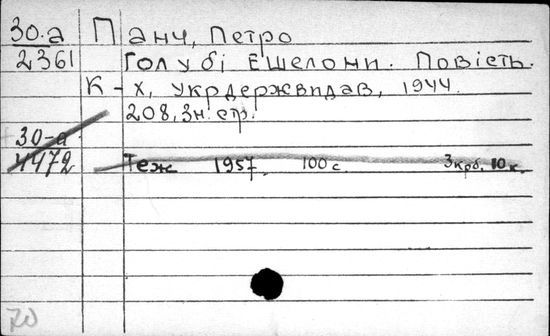 30-а Панч, Петро
2361 Голубі Ешелони. Повість.
К-х, укрдержвидав, 1944
208, 3н. стр.
30-а
4472 Теж 1957 100 с. 3 крб. 10 к.
70